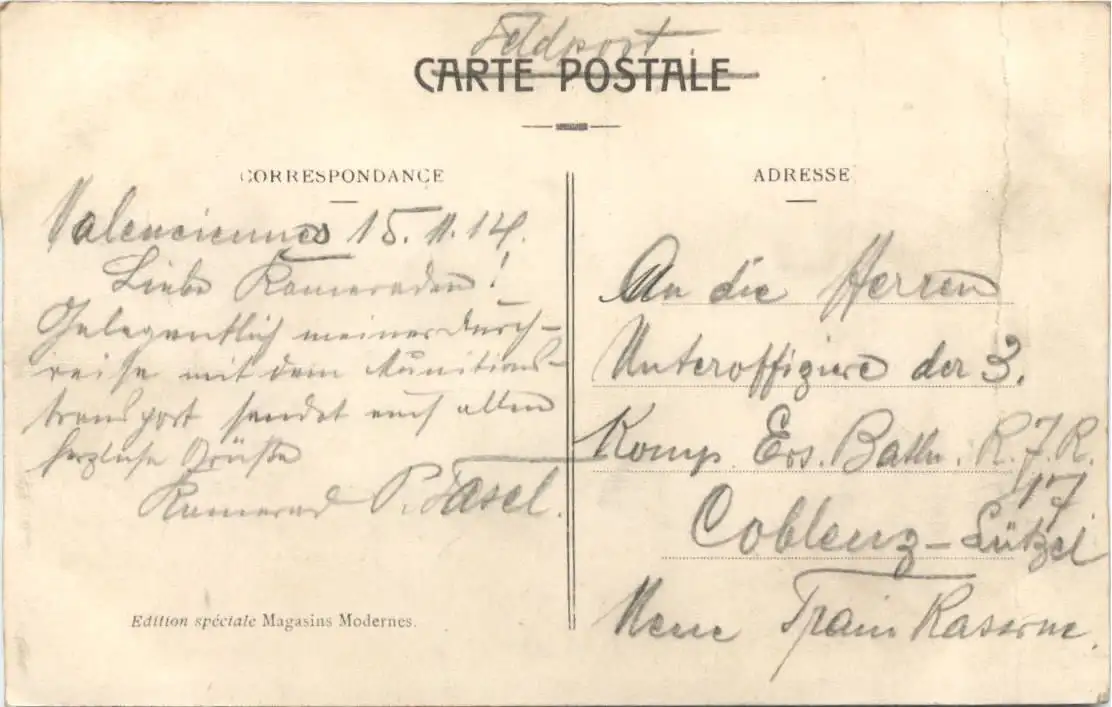 Feldpost
CARTE POSTALE
CORRESPONDANCE
Valenciennes 15.11.14.
Liebe Kameraden!
Gelegentlich meiner Durch-
reise mit dem Munitions-
transport sendet euch allen
herzliche Grüße
Kamerad P. Fasel.
Edition spéciale Magasins Modernes.
ADRESSE
An die Herren
Unteroffiziere der 3.
Komp. Ers. Batln. R.J.R.
17
Coblenz-Lützel
Neue Train Kaserne.